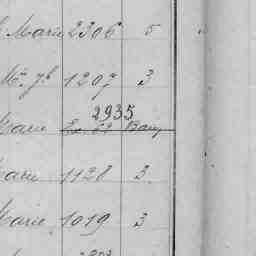 Marie 2306 5
1207 3
2935
Marie
Marie 1128 3
Marie 1019 3